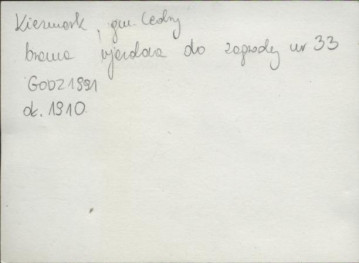 Kiezmark, gm Cedry
brama wjazdowa do zagrody nr 33
GODZ 1991
ok. 1910.